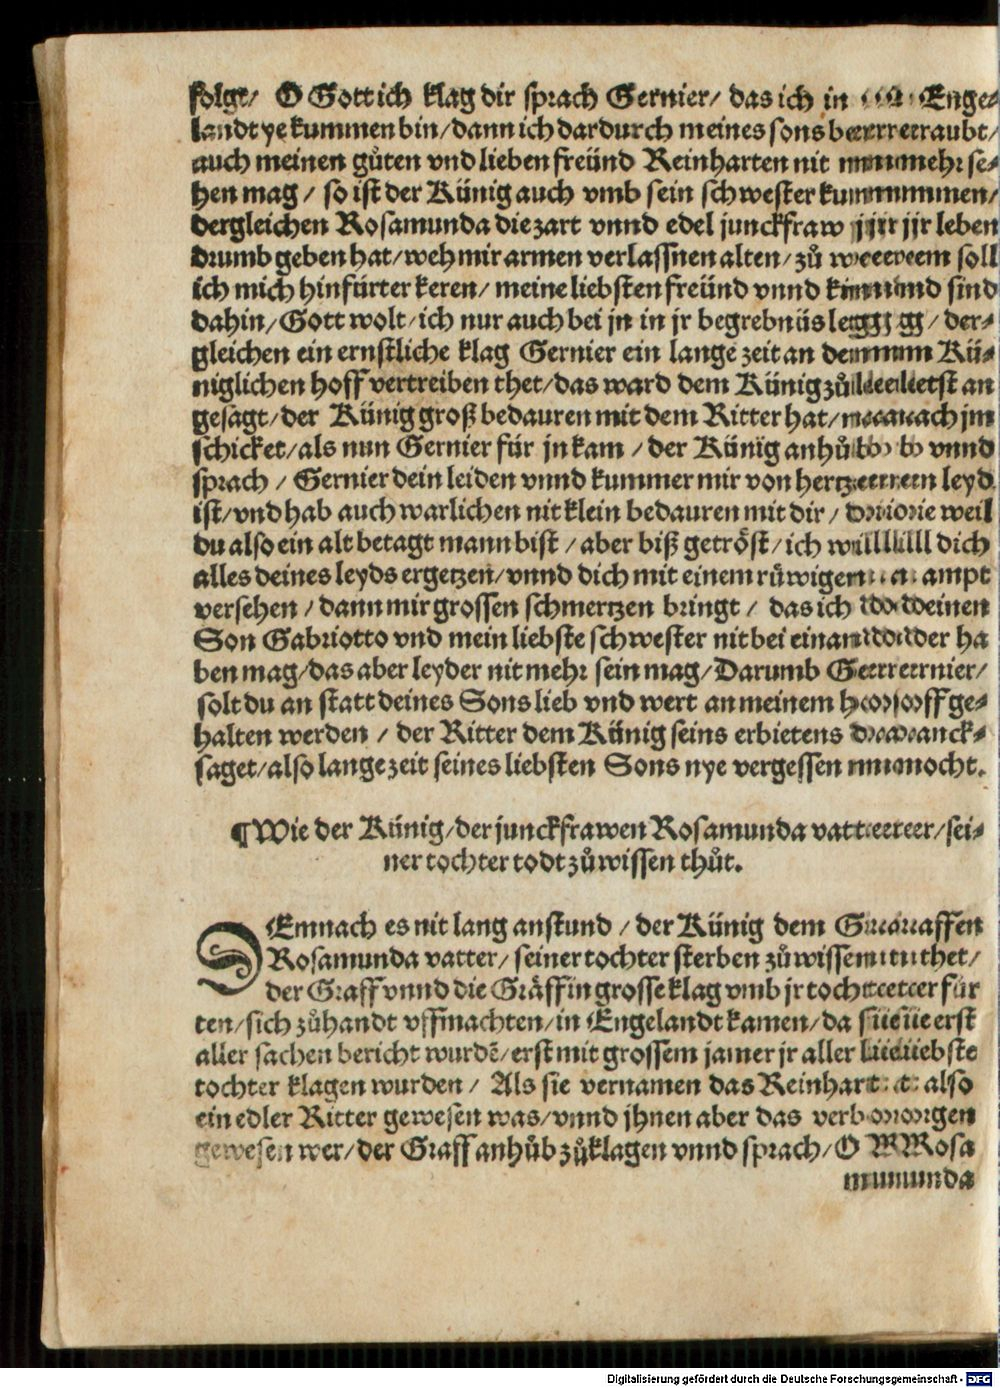 folgt/ O Gott ich klag dir sprach Gernier/ das ich in Enge⸗
landt ye kummen bin/ dann ich dardurch meines sons beraubt/
auch meinen gůten vnd lieben freünd Reinharten nit mehr se⸗
hen mag/ so ist der Künig auch vmb sein schwester kummen/
dergleichen Rosamunda die zart vnnd edel junckfraw jr leben
drumb geben hat/ weh mir armen verlassnen alten/ zů wem soll
ich mich hinfürter keren/ meine liebsten freünd vnnd kind sind
dahin/ Gott wolt/ ich nur auch bei jn in jr begrebnüs leg/ der⸗
gleichen ein ernstliche klag Gernier ein lange zeit an dem Kü⸗
niglichen hoff vertreiben thet/ das ward dem Künig zů letst an
gesagt/ der Künig groß bedauren mit dem Ritter hat/ nach jm
schicket/ als nun Gernier für jn kam/ der Künig anhůb vnnd
sprach/ Gernier dein leiden vnnd kummer mir von hertzen leyd
ist/ vnd hab auch warlichen nit klein bedauren mit dir/ die weil
du also ein alt betagt mann bist/ aber biß getröst/ ich will dich
alles deines leyds ergetzen/ vnnd dich mit einem rüwigen ampt
versehen/ dann mir grossen schmertzen bringt/ das ich deinen
Son Gabriotto vnd mein liebste schwester nit bei einander ha
ben mag/ das aber leyder nit mehr sein mag/ Darumb Gernier/
solt du an statt deines Sons lieb vnd wert an meinem hoff ge⸗
halten werden/ der Ritter dem Künig seins erbietens danck⸗
saget/ also lange zeit seines liebsten Sons nye vergessen mocht.
¶ Wie der Künig/ der junckfrawen Rosamunda vatter/ sei⸗
ner tochter todt zů wissen thůt.
DEmnach es nit lang anstund/ der Künig dem Graffen
Rosamunda vatter/ seiner tochter sterben zů wissen thet/
der Graff vnnd die Gräffin grosse klag vmb jr tochter für
ten/ sich zůhandt vffmachten/ in Engelandt kamen/ da sie erst
aller sachen bericht wurdē/ erst mit grossem jamer jr aller liebste
tochter klagen wurden/ Als sie vernamen das Reinhart also
ein edler Ritter gewesen was/ vnnd jhnen aber das verborgen
gewesen wer/ der Graff anhůb zů klagen vnnd sprach/ O Rosa
munda
Digitalisierung gefördert durch die Deutsche Forschungsgemeinschaft - DFG